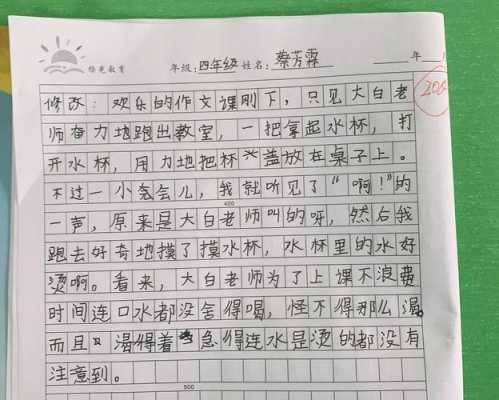 格色教育
年级：四年级 姓名：蔡芳霖 年
修改：欢乐的作文课刚下，只见大白老
师奋力地跑出教室，一把拿起水杯，打
开水杯，用力地把杯盖放在桌子上。
不过一小会儿，我就听见了“啊！”的
400
一声，原来是大白老师叫的呀，然后我
跑去好奇地摸了摸水杯，水杯里的水好
烫啊。看来，大白老师为了上课不浪费
时间连口水都没舍得喝，怪不得那么渴。
而且渴得着急得连水是烫的都没有
注意到。
500